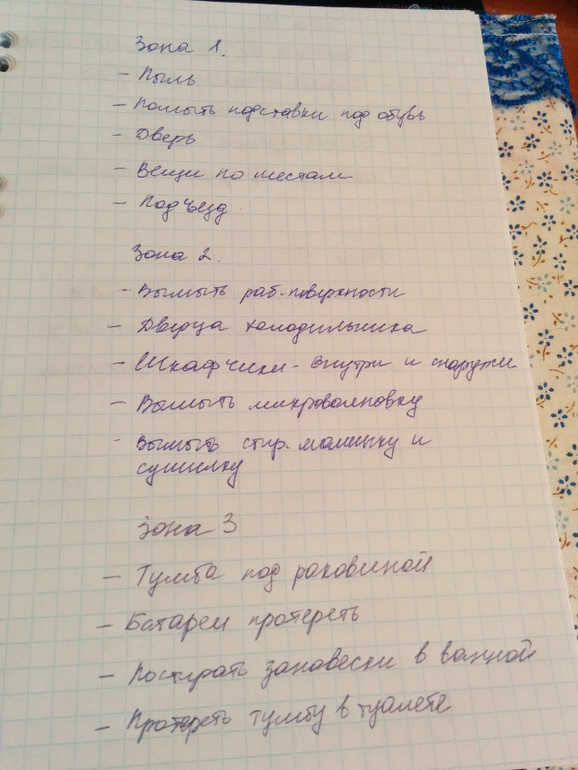 Зона 1.
- Пыль
- Помыть подставки под обувь
- Дверь
- Вещи по местам
- Подъезд.
Зона 2.
- Вымыть раб. поверхности
- Дверца холодильника
- Шкафчики - внутри и снаружи
- Вымыть микроволновку
- Вымыть стир. машинку и
сушилку
Зона 3
- Тумба под раковиной
- Батареи протереть
- Постирать занавески в ванной
- Протереть тумбу в туалете